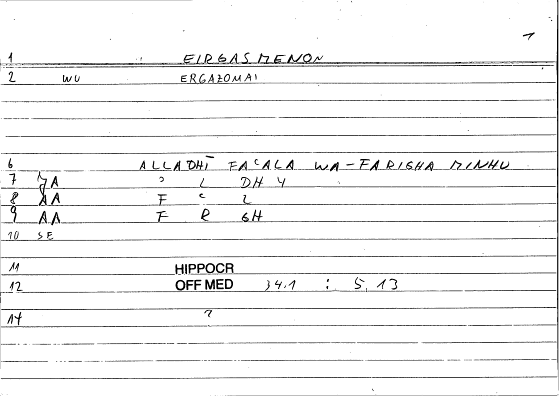 1
1 EIRGASMENON
2 WU ERGAZOMAI
6 ALLADHĪ FAʿALA WA-FARIGHA MINHU
7 AA ʾ L DH Y
8 AA F ʿ L
9 AA F R GH
10 SE
11 HIPPOCR
12 OFF MED 34.1 : 5, 13
14 2